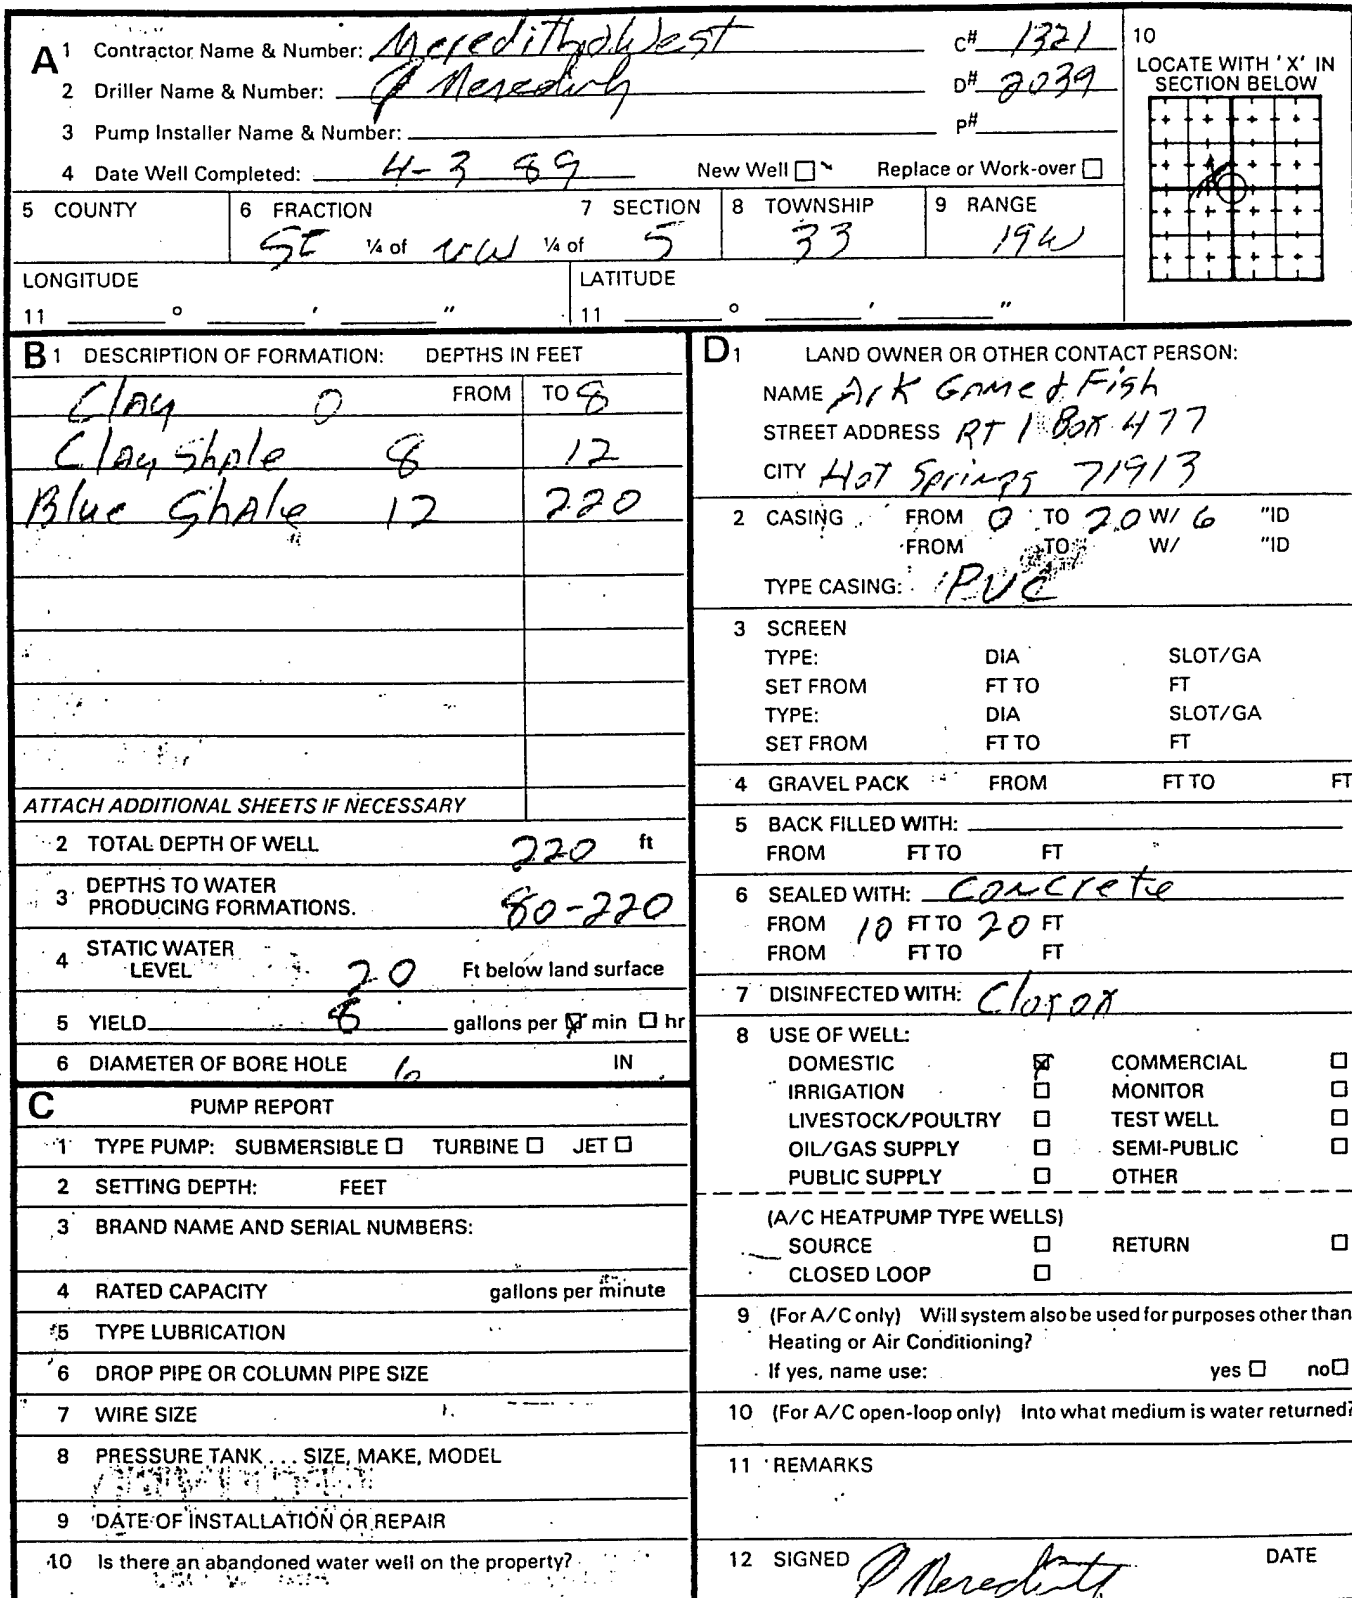 A 1 Contractor Name & Number: Meredith & West C# 1321
2 Driller Name & Number: P Meredith D# 2039
3 Pump Installer Name & Number: P#
4 Date Well Completed: 4-3 89 New Well ☐ Replace or Work-over ☐
10
LOCATE WITH 'X' IN
SECTION BELOW
5 COUNTY 6 FRACTION 7 SECTION 8 TOWNSHIP 9 RANGE
SE ¼ of NW ¼ of 5 33 19W
LONGITUDE LATITUDE
11 ° ' " 11 ° ' "
B 1 DESCRIPTION OF FORMATION: DEPTHS IN FEET
FROM TO
Clay 0 8
Clay Shale 8 12
Blue Shale 12 220
ATTACH ADDITIONAL SHEETS IF NECESSARY
2 TOTAL DEPTH OF WELL 220 ft
3 DEPTHS TO WATER
PRODUCING FORMATIONS. 80-220
4 STATIC WATER
LEVEL 20 Ft below land surface
5 YIELD 8 gallons per ☒ min ☐ hr
6 DIAMETER OF BORE HOLE 6 IN
C PUMP REPORT
1 TYPE PUMP: SUBMERSIBLE ☐ TURBINE ☐ JET ☐
2 SETTING DEPTH: FEET
3 BRAND NAME AND SERIAL NUMBERS:
4 RATED CAPACITY gallons per minute
5 TYPE LUBRICATION
6 DROP PIPE OR COLUMN PIPE SIZE
7 WIRE SIZE
8 PRESSURE TANK . . . SIZE, MAKE, MODEL
9 DATE OF INSTALLATION OR REPAIR
10 Is there an abandoned water well on the property?
D 1 LAND OWNER OR OTHER CONTACT PERSON:
NAME Ark Game & Fish
STREET ADDRESS RT 1 Box 477
CITY Hot Springs 71913
2 CASING FROM 0 TO 20 W/ 6 "ID
FROM TO W/ "ID
TYPE CASING: PVC
3 SCREEN
TYPE: DIA SLOT/GA
SET FROM FT TO FT
TYPE: DIA SLOT/GA
SET FROM FT TO FT
4 GRAVEL PACK FROM FT TO FT
5 BACK FILLED WITH:
FROM FT TO FT
6 SEALED WITH: Concrete
FROM 10 FT TO 20 FT
FROM FT TO FT
7 DISINFECTED WITH: Clorox
8 USE OF WELL:
DOMESTIC ☒ COMMERCIAL ☐
IRRIGATION ☐ MONITOR ☐
LIVESTOCK/POULTRY ☐ TEST WELL ☐
OIL/GAS SUPPLY ☐ SEMI-PUBLIC ☐
PUBLIC SUPPLY ☐ OTHER
(A/C HEATPUMP TYPE WELLS)
SOURCE ☐ RETURN ☐
CLOSED LOOP ☐
9 (For A/C only) Will system also be used for purposes other than
Heating or Air Conditioning?
If yes, name use: yes ☐ no ☐
10 (For A/C open-loop only) Into what medium is water returned?
11 REMARKS
12 SIGNED P Meredith DATE